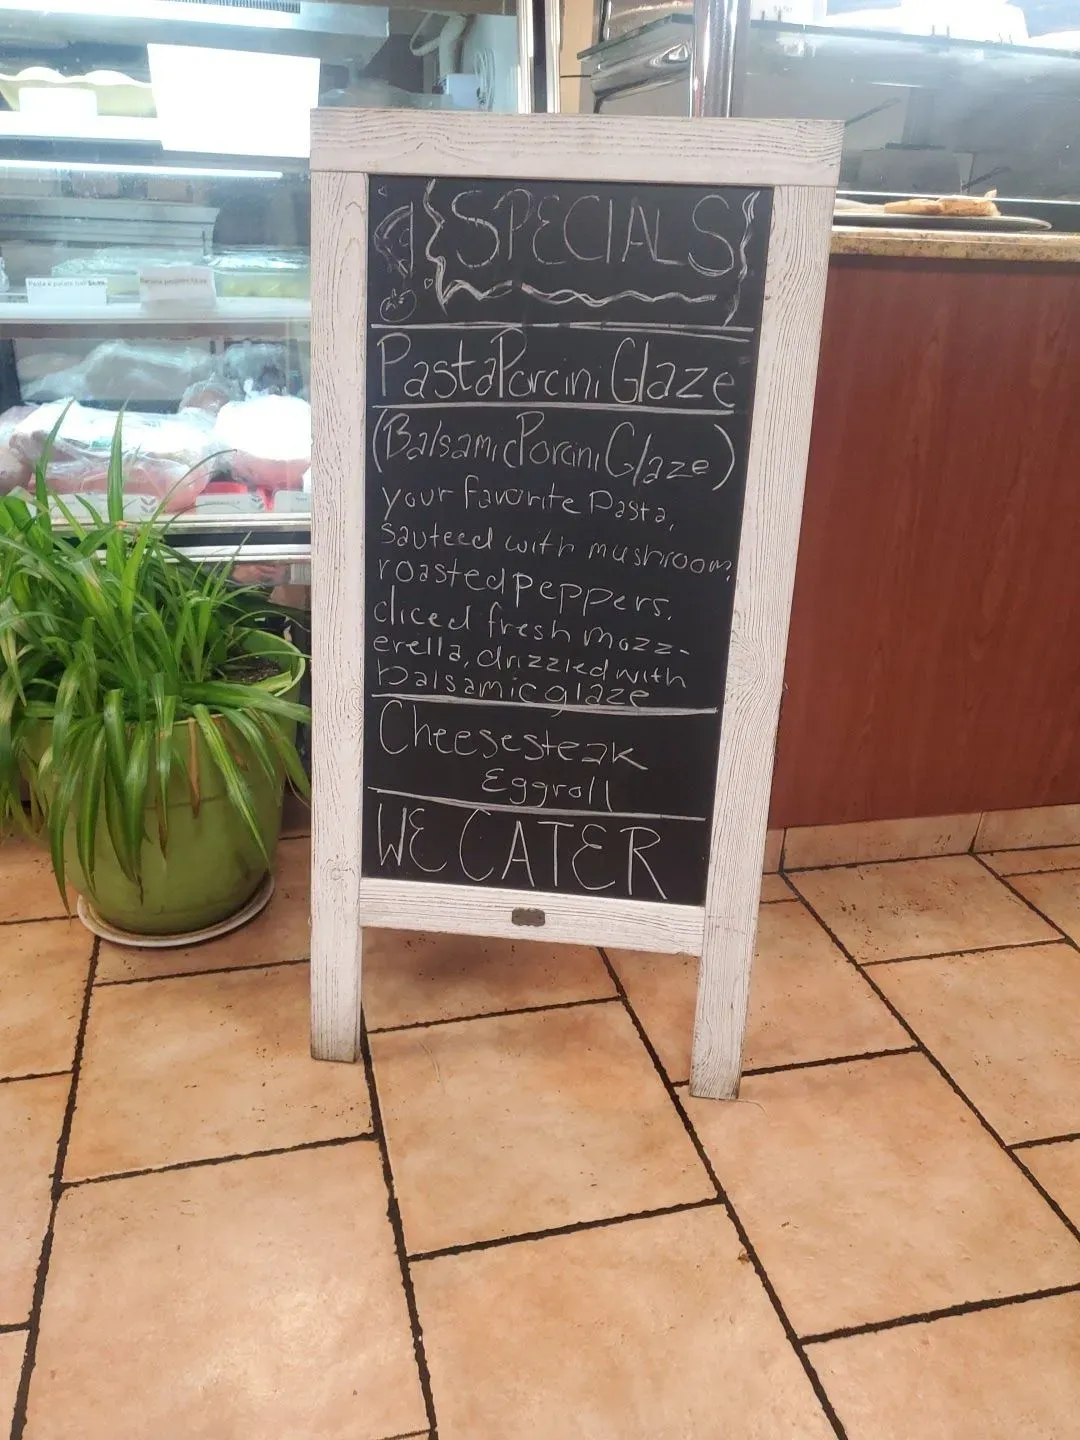 SPECIALS
Pasta Porcini Glaze
(Balsamic Porcini Glaze)
your favorite Pasta,
sauteed with mushroom,
roasted peppers,
cliced fresh mozz-
erella, drizzled with
balsamic glaze
Cheesesteak
Eggroll
WE CATER